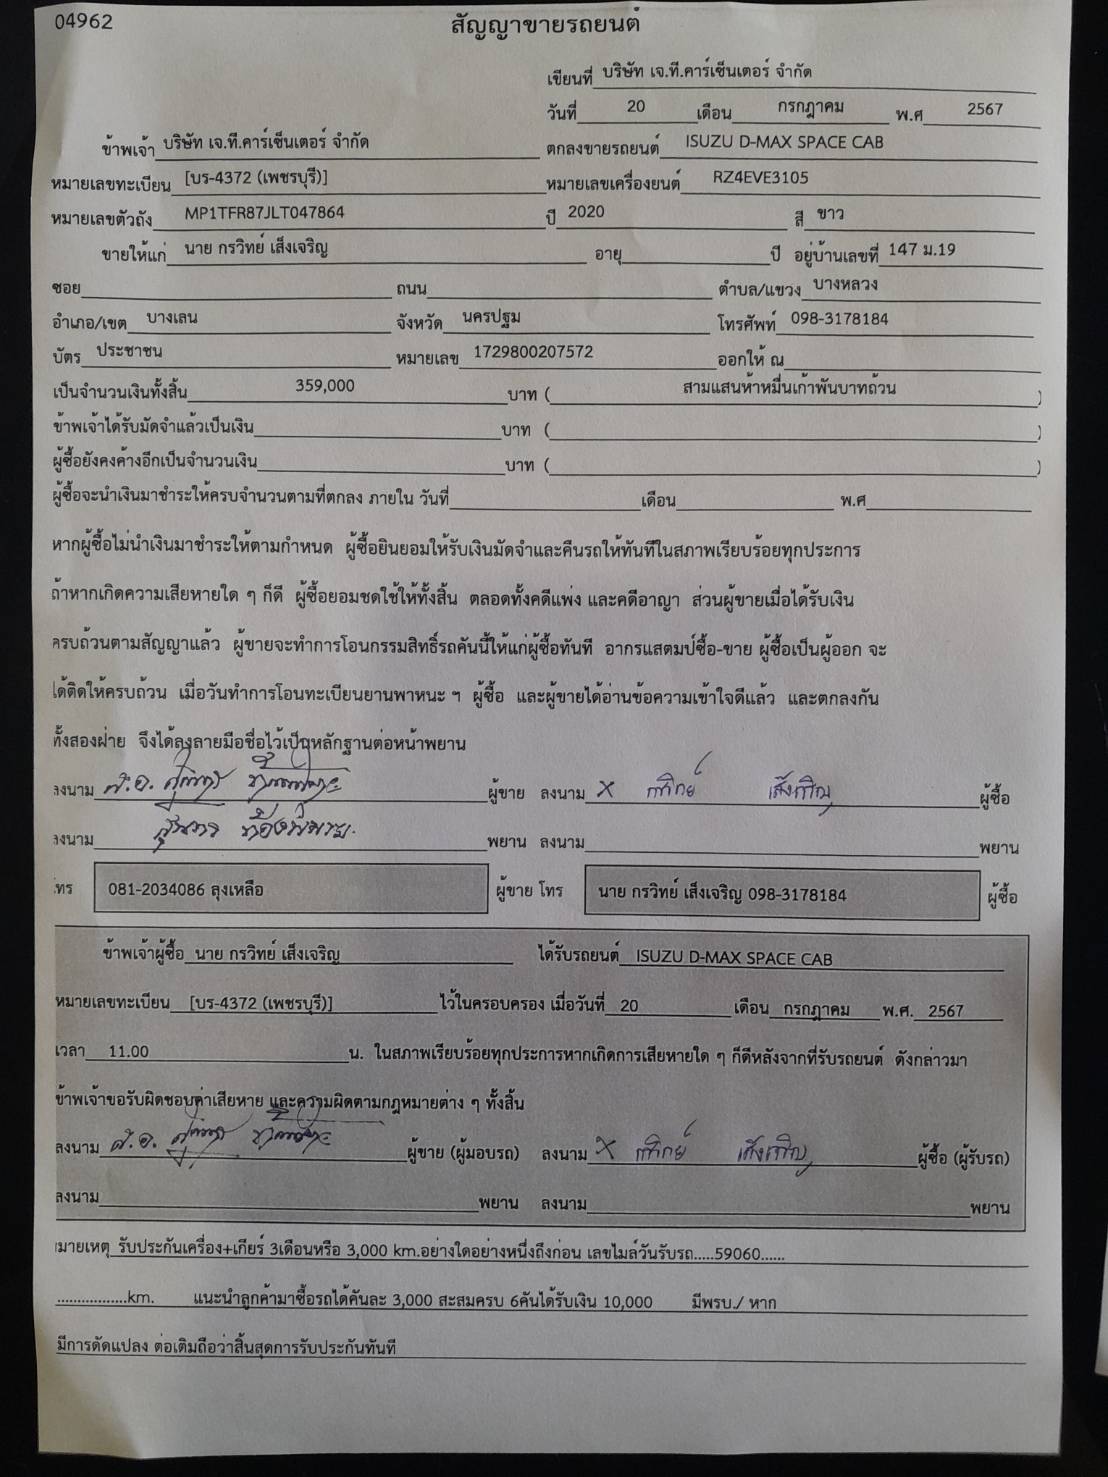 04962
สัญญาขายรถยนต์
เขียนที่ บริษัท เจ.ที.คาร์เซ็นเตอร์ จำกัด
วันที่ 20 เดือน กรกฎาคม พ.ศ 2567
ข้าพเจ้า บริษัท เจ.ที.คาร์เซ็นเตอร์ จำกัด ตกลงขายรถยนต์ ISUZU D-MAX SPACE CAB
หมายเลขทะเบียน [บร-4372 (เพชรบุรี)] หมายเลขเครื่องยนต์ RZ4EVE3105
หมายเลขตัวถัง MP1TFR87JLT047864 ปี 2020 สี ขาว
ขายให้แก่ นาย กรวิทย์ เส็งเจริญ อายุ ปี อยู่บ้านเลขที่ 147 ม.19
ซอย ถนน ตำบล/แขวง บางหลวง
อำเภอ/เขต บางเลน จังหวัด นครปฐม โทรศัพท์ 098-3178184
บัตร ประชาชน หมายเลข 1729800207572 ออกให้ ณ
เป็นจำนวนเงินทั้งสิ้น 359,000 บาท ( สามแสนห้าหมื่นเก้าพันบาทถ้วน )
ข้าพเจ้าได้รับมัดจำแล้วเป็นเงิน บาท ( )
ผู้ซื้อยังคงค้างอีกเป็นจำนวนเงิน บาท ( )
ผู้ซื้อจะนำเงินมาชำระให้ครบจำนวนตามที่ตกลง ภายใน วันที่ เดือน พ.ศ
หากผู้ซื้อไม่นำเงินมาชำระให้ตามกำหนด ผู้ซื้อยินยอมให้รับเงินมัดจำและคืนรถให้ทันทีในสภาพเรียบร้อยทุกประการ
ถ้าหากเกิดความเสียหายใด ๆ ก็ดี ผู้ซื้อยอมชดใช้ให้ทั้งสิ้น ตลอดทั้งคดีแพ่ง และคดีอาญา ส่วนผู้ขายเมื่อได้รับเงิน
ครบถ้วนตามสัญญาแล้ว ผู้ขายจะทำการโอนกรรมสิทธิ์รถคันนี้ให้แก่ผู้ซื้อทันที อากรแสตมป์ซื้อ-ขาย ผู้ซื้อเป็นผู้ออก จะ
ได้ติดให้ครบถ้วน เมื่อวันทำการโอนทะเบียนยานพาหนะ ฯ ผู้ซื้อ และผู้ขายได้อ่านข้อความเข้าใจดีแล้ว และตกลงกัน
ทั้งสองฝ่าย จึงได้ลงลายมือชื่อไว้เป็นหลักฐานต่อหน้าพยาน
ลงนาม ส.อ. ผู้ขาย ลงนาม X กรวิทย์ เส็งเจริญ ผู้ซื้อ
ลงนาม พยาน ลงนาม พยาน
โทร 081-2034086 ลุงเหลือ ผู้ขาย โทร นาย กรวิทย์ เส็งเจริญ 098-3178184 ผู้ซื้อ
ข้าพเจ้าผู้ซื้อ นาย กรวิทย์ เส็งเจริญ ได้รับรถยนต์ ISUZU D-MAX SPACE CAB
หมายเลขทะเบียน [บร-4372 (เพชรบุรี)] ไว้ในครอบครอง เมื่อวันที่ 20 เดือน กรกฎาคม พ.ศ. 2567
เวลา 11.00 น. ในสภาพเรียบร้อยทุกประการหากเกิดการเสียหายใด ๆ ก็ดีหลังจากที่รับรถยนต์ ดังกล่าวมา
ข้าพเจ้าขอรับผิดชอบค่าเสียหาย และความผิดตามกฎหมายต่าง ๆ ทั้งสิ้น
ลงนาม ส.อ. ผู้ขาย (ผู้มอบรถ) ลงนาม X กรวิทย์ เส็งเจริญ ผู้ซื้อ (ผู้รับรถ)
ลงนาม พยาน ลงนาม พยาน
หมายเหตุ รับประกันเครื่อง+เกียร์ 3เดือนหรือ 3,000 km.อย่างใดอย่างหนึ่งถึงก่อน เลขไมล์วันรับรถ.....59060......
.................km. แนะนำลูกค้ามาซื้อรถได้คันละ 3,000 สะสมครบ 6คันได้รับเงิน 10,000 มีพรบ./ หาก
มีการดัดแปลง ต่อเติมถือว่าสิ้นสุดการรับประกันทันที